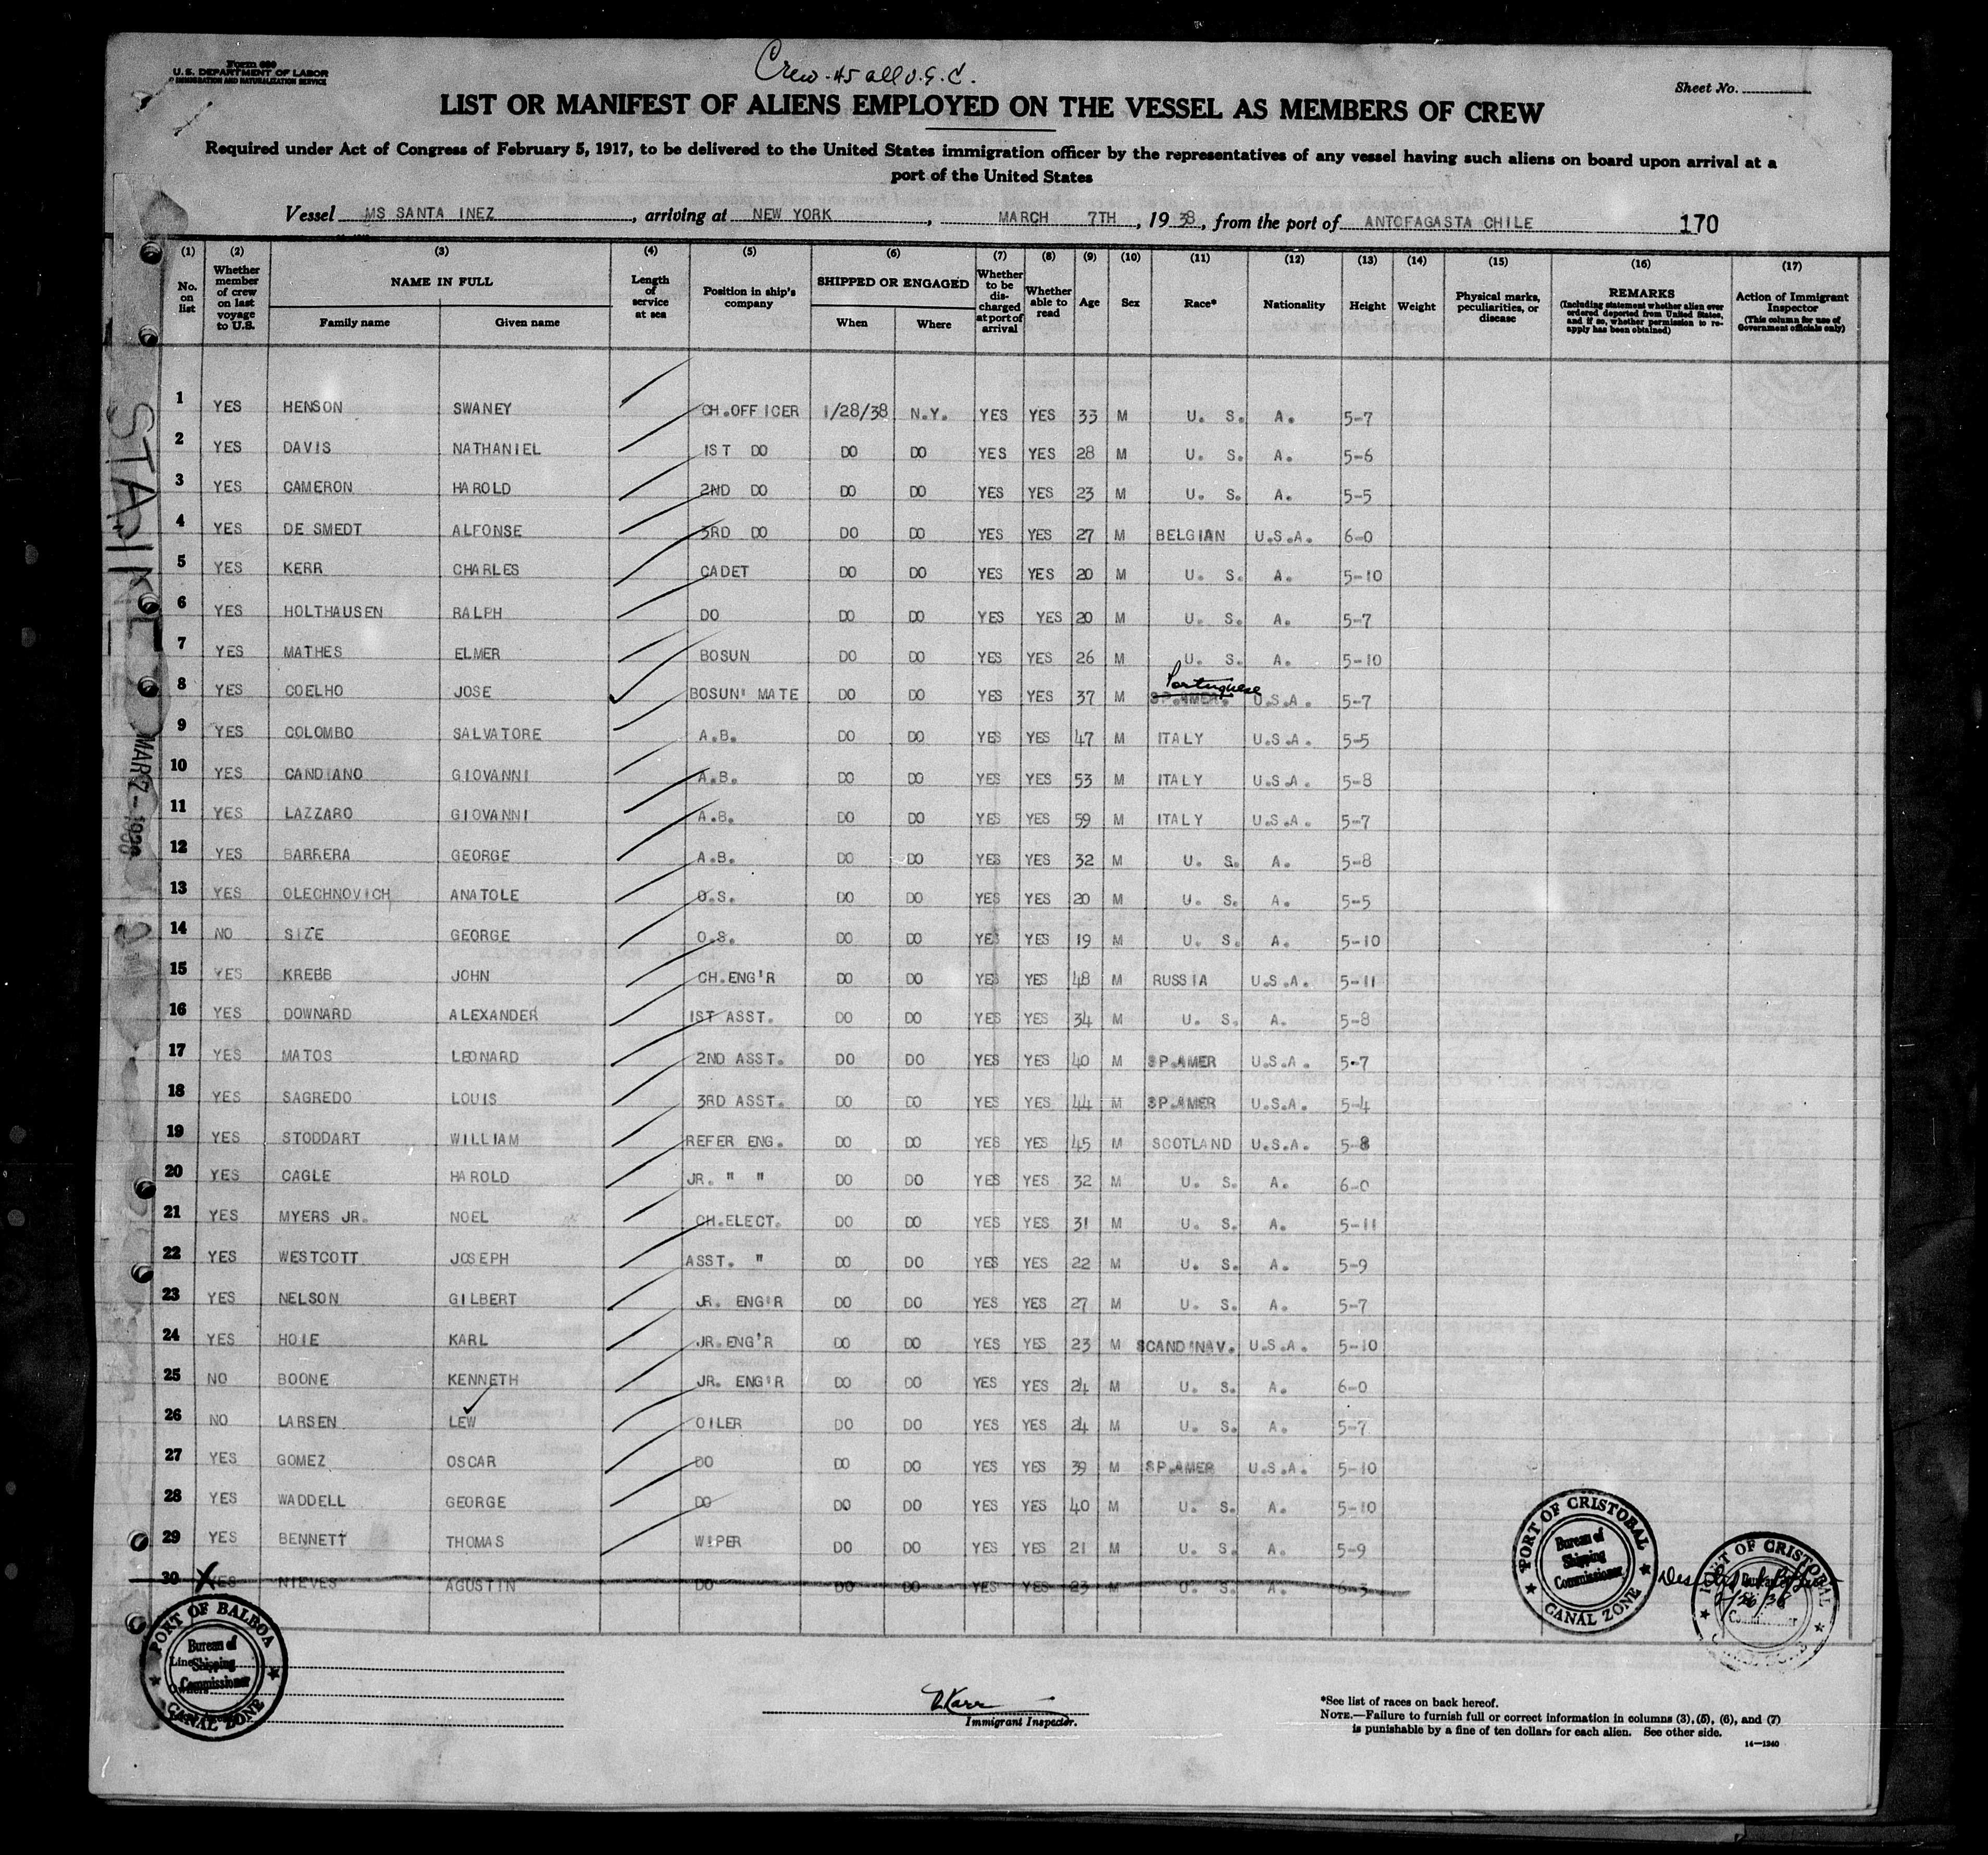 Form 680
U. S. DEPARTMENT OF LABOR
IMMIGRATION AND NATURALIZATION SERVICE
Crew - 45 all U.S.C.
Sheet No.
LIST OR MANIFEST OF ALIENS EMPLOYED ON THE VESSEL AS MEMBERS OF CREW
Required under Act of Congress of February 5, 1917, to be delivered to the United States immigration officer by the representatives of any vessel having such aliens on board upon arrival at a
port of the United States
Vessel MS SANTA INEZ, arriving at NEW YORK, MARCH 7TH, 1938, from the port of ANTOFAGASTA CHILE 170
(1) (2) (3) (4) (5) (6) (7) (8) (9) (10) (11) (12) (13) (14) (15) (16) (17)
No. on list Whether member of crew on last voyage to U.S. NAME IN FULL Family name Given name Length of service at sea Position in ship's company SHIPPED OR ENGAGED When Where Whether to be discharged at port of arrival Whether able to read Age Sex Race* Nationality Height Weight Physical marks, peculiarities, or disease REMARKS (Including statement whether alien ever ordered deported from United States, and if so, whether permission to reapply has been obtained) Action of Immigrant Inspector (This column for use of Government officials only)
1 YES HENSON SWANEY CH.OFFICER 1/28/38 N.Y. YES YES 33 M U. S. A. 5-7
2 YES DAVIS NATHANIEL 1ST DO DO DO YES YES 28 M U. S. A. 5-6
3 YES CAMERON HAROLD 2ND DO DO DO YES YES 23 M U. S. A. 5-5
4 YES DE SMEDT ALFONSE 3RD DO DO DO YES YES 27 M BELGIAN U.S.A. 6-0
5 YES KERR CHARLES CADET DO DO YES YES 20 M U. S. A. 5-10
6 YES HOLTHAUSEN RALPH DO DO DO YES YES 20 M U. S. A. 5-7
7 YES MATHES ELMER BOSUN DO DO YES YES 26 M U. S. A. 5-10
8 YES COELHO JOSE BOSUN' MATE DO DO YES YES 37 M SP.AMER. Portuguese U.S.A. 5-7
9 YES COLOMBO SALVATORE A.B. DO DO YES YES 47 M ITALY U.S.A. 5-5
10 YES CANDIANO GIOVANNI A.B. DO DO YES YES 53 M ITALY U.S.A. 5-8
11 YES LAZZARO GIOVANNI A.B. DO DO YES YES 59 M ITALY U.S.A. 5-7
12 YES BARRERA GEORGE A.B. DO DO YES YES 32 M U. S. A. 5-8
13 YES OLECHNOVICH ANATOLE O.S. DO DO YES YES 20 M U. S. A. 5-5
14 NO SIZE GEORGE O.S. DO DO YES YES 19 M U. S. A. 5-10
15 YES KREBB JOHN CH.ENG'R DO DO YES YES 48 M RUSSIA U.S.A. 5-11
16 YES DOWNARD ALEXANDER 1ST ASST. DO DO YES YES 34 M U. S. A. 5-8
17 YES MATOS LEONARD 2ND ASST. DO DO YES YES 40 M SP.AMER U.S.A. 5-7
18 YES SAGREDO LOUIS 3RD ASST. DO DO YES YES 44 M SP.AMER U.S.A. 5-4
19 YES STODDART WILLIAM REFER ENG. DO DO YES YES 45 M SCOTLAND U.S.A. 5-8
20 YES CAGLE HAROLD JR. " " DO DO YES YES 32 M U. S. A. 6-0
21 YES MYERS JR. NOEL CH.ELECT. DO DO YES YES 31 M U. S. A. 5-11
22 YES WESTCOTT JOSEPH ASST. " DO DO YES YES 22 M U. S. A. 5-9
23 YES NELSON GILBERT JR. ENG'R DO DO YES YES 27 M U. S. A. 5-7
24 YES HOIE KARL JR.ENG'R DO DO YES YES 23 M SCANDINAV. U.S.A. 5-10
25 NO BOONE KENNETH JR. ENG'R DO DO YES YES 24 M U. S. A. 6-0
26 NO LARSEN LEW OILER DO DO YES YES 24 M U. S. A. 5-7
27 YES GOMEZ OSCAR DO DO DO YES YES 39 M SP.AMER U.S.A. 5-10
28 YES WADDELL GEORGE DO DO DO YES YES 40 M U. S. A. 5-10
29 YES BENNETT THOMAS WIPER DO DO YES YES 21 M U. S. A. 5-9
30 YES NIEVES AGUSTIN DO DO DO YES YES 23 M U. S. A. 6-3
PORT OF CRISTOBAL
Bureau of
Shipping
Commissioner
CANAL ZONE
2/26/38
PORT OF CRISTOBAL
Commissioner
PORT OF BALBOA
Bureau of
Shipping
Commissioner
CANAL ZONE
Line
Owners
Immigrant Inspector.
*See list of races on back hereof.
NOTE.—Failure to furnish full or correct information in columns (3), (5), (6), and (7)
is punishable by a fine of ten dollars for each alien. See other side.
14—1240